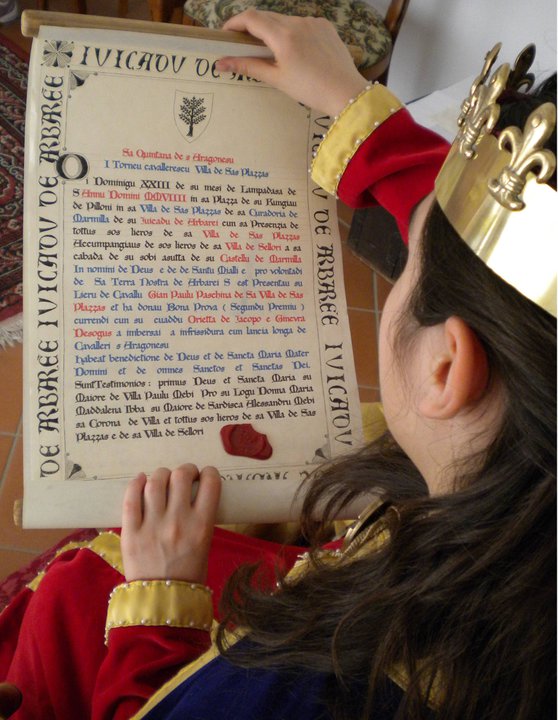 IVICADV DE ARBAREE
Sa Quintana de s Aragonesu
I Torneu cavallerescu Villa de Sas Plazzas
O Dominigu XXIII de su mesi de Lampadasa de
S Annu Domini MMVIIII in sa Plazza de su Rungiau
de Pilloni in sa Villa de Sas Plazzas de sa Curadoria de
Marmilla de su Juicadu de Arbarei cun sa Presenzia de
tottus sos lieros de sa Villa de Sas Plazzas
Accumpangiaus de sos lieros de sa Villa de Sellori a sa
cabada de su sobi asutta de su Castellu de Marmilla
In nomini de Deus e de de Santu Mialli e pro volontadi
de Sa Terra Nostra de Arbarei S est Presentau su
Lieru de Cavallu Gian Paulu Paschina de Sa Villa de Sas
Plazzas et ha donau Bona Prova ( Segundu Premiu )
currendi cun su cuaddu Orietta de Jacopo e Ginevra
Desogus a imbersai a infrissidura cun lancia longa de
Cavalleri s Aragonesu
habeat benedictione de Deus et de Sancta Maria Mater
Domini et de omnes Sanctos et Sanctas Dei.
Sunt Testimonios : primus Deus et Sancta Maria su
Maiore de Villa Paulu Mebi Pro su Logu Donna Maria
Maddalena Ibba su Maiore de Sardisca Alessandru Mebi
sa Corona de Villa et tottus sos lieros de sa Villa de Sas
Plazzas e de sa Villa de Sellori
DE ARBAREE IVICADV DE ARBAREE
IVICADV DE ARBAREE IVICADV